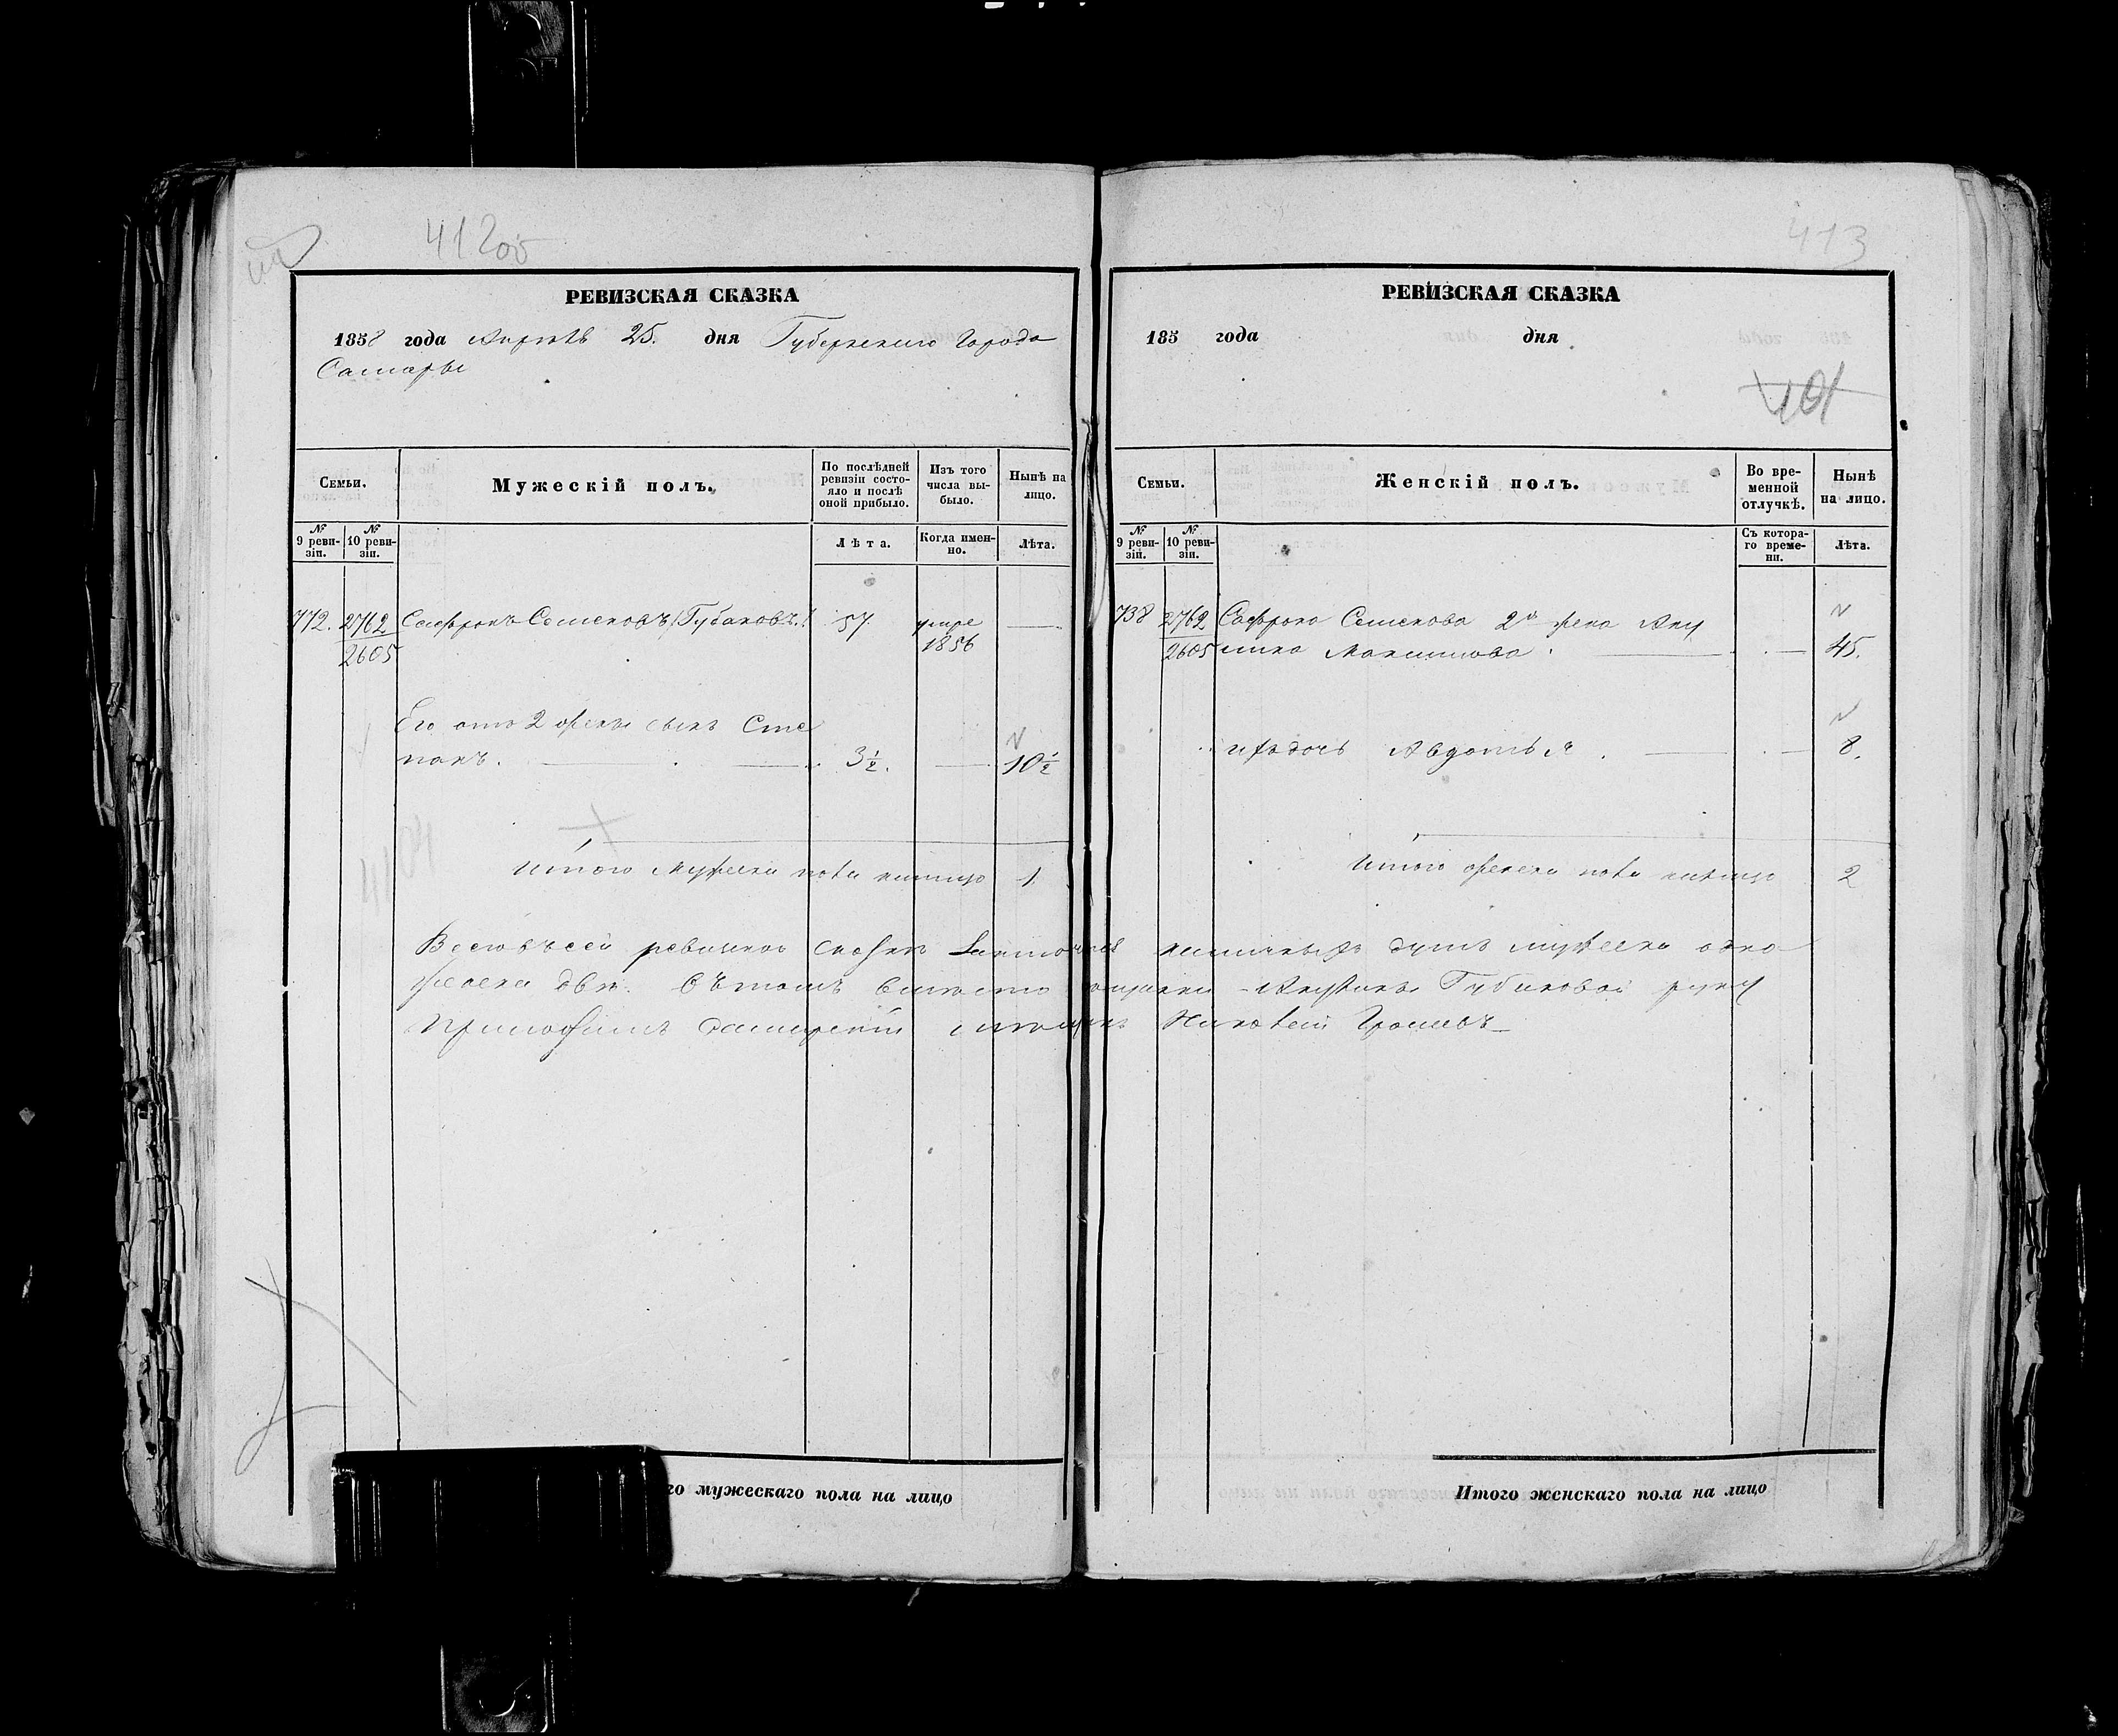 412об
413
РЕВИЗСКАЯ СКАЗКА
1858 года Апрѣль 25. дня Губернскаго Города
Самары
Семьи.
Мужескій полъ.
По послѣдней ревизіи состояло и послѣ оной прибыло.
Изъ того числа выбыло.
Нынѣ на лицо.
№ 9 ревизіи.
№ 10 ревизіи.
Лѣта.
Когда именно.
Лѣта.
772. 2762 Сафронъ Семеновъ (Губановъ) 57 умре
2605 1856
Его отъ 2 жены сынъ Сте
панъ. 3½. 10½
Итого мужеска пола налицо 1
го мужескаго пола на лицо
РЕВИЗСКАЯ СКАЗКА
185 года дня
101
Семьи.
Женскій полъ.
Во временной отлучкѣ.
Нынѣ на лицо.
№ 9 ревизіи.
№ 10 ревизіи.
Съ котораго времени.
Лѣта.
738 2762 Сафрона Семенова 2я жена Аку
2605 лина Максимова 45.
ихъ дочь Авдотья 8.
Итого женска пола налицо 2
Всего въ сей ревизской сказкѣ наличныхъ душъ мужеска одно
женска двѣ. Въ томъ вмѣсто Губановой руку
приложилъ Самарскій Николай
Итого женскаго пола на лицо